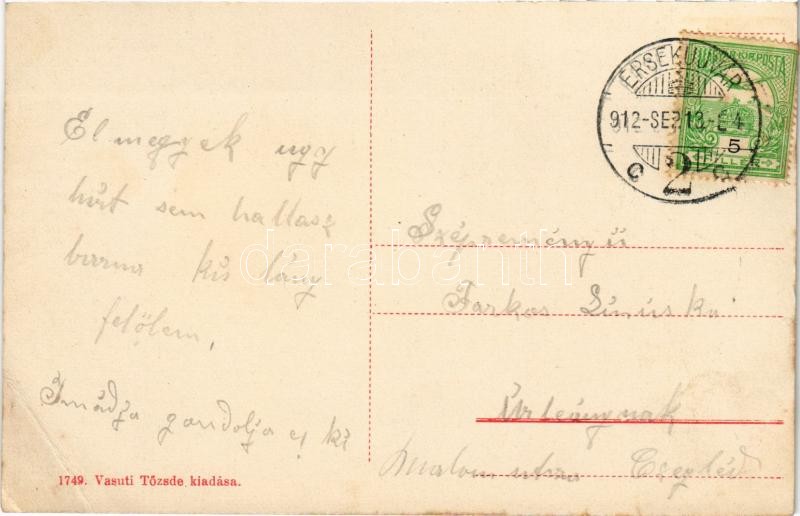 ÉRSEKUJVÁR
912-SEP 18-E4
2
MAGYAR KIR. POSTA
5
FILLÉR
Elmegyek ugy
hirt sem hallasz
barna kis lány
felőlem,
Imádja gondolja el ki
Szépreményű
Farkas
Urleánynak
Malom utca Czegléd
1749. Vasuti Tőzsde kiadása.
darabanth